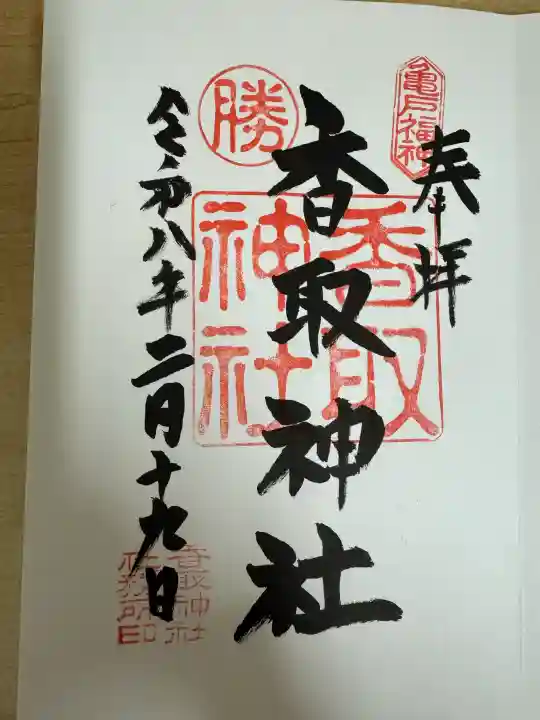 亀戸福神
奉拝
勝
香取神社
香取神社
令和八年二月十九日
香取神社
社務所印